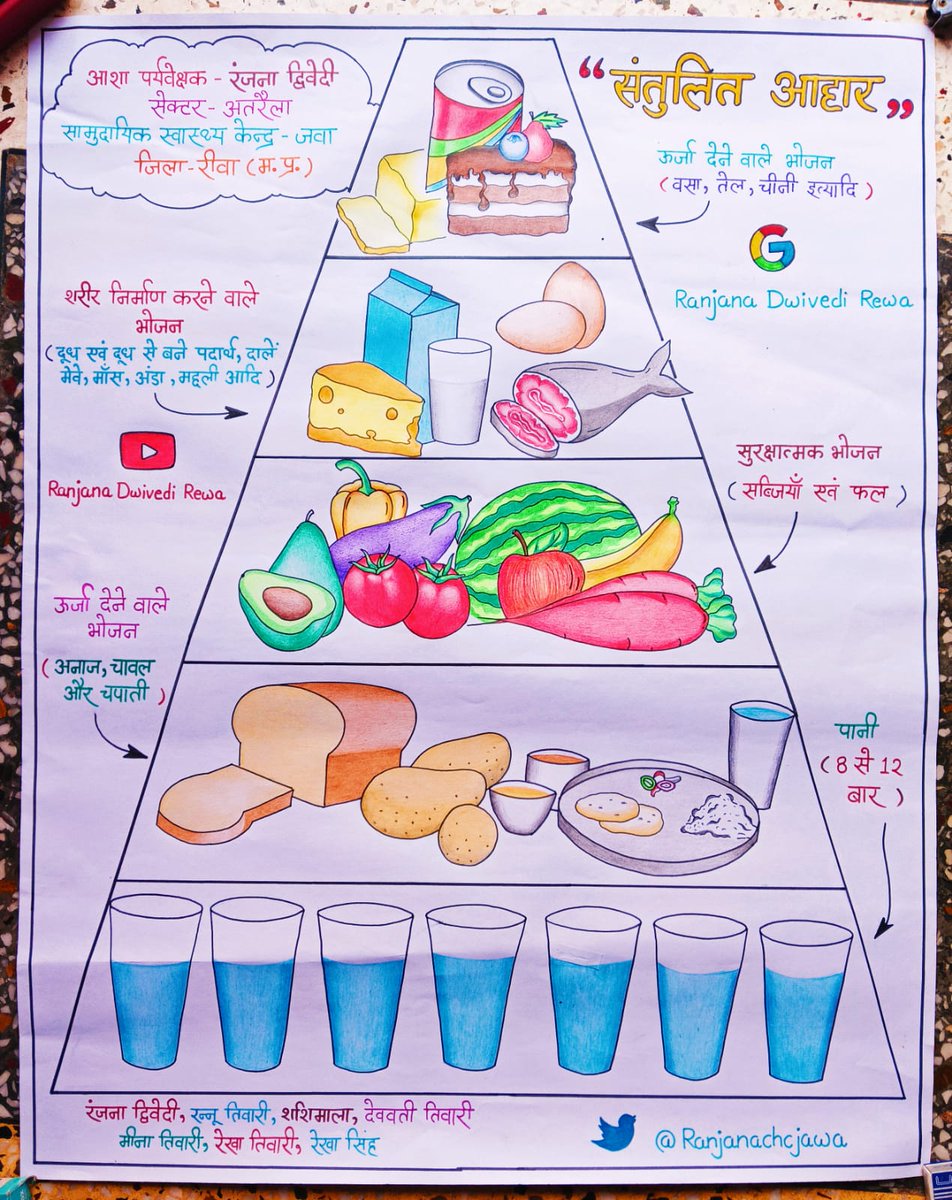 आशा पर्यवेक्षक - रंजना द्विवेदी
सेक्टर - अतरैला
सामुदायिक स्वास्थ्य केन्द्र - जवा
जिला - रीवा (म.प्र.)
“संतुलित आहार”
ऊर्जा देने वाले भोजन
(वसा, तेल, चीनी इत्यादि)
G
Ranjana Dwivedi Rewa
शरीर निर्माण करने वाले
भोजन
(दूध एवं दूध से बने पदार्थ, दालें
मेवे, माँस, अंडा, मछली आदि)
Ranjana Dwivedi Rewa
सुरक्षात्मक भोजन
(सब्जियाँ एवं फल)
ऊर्जा देने वाले
भोजन
(अनाज, चावल
और चपाती)
पानी
(8 से 12
बार)
रंजना द्विवेदी, रन्नू तिवारी, शशिमाला, देववती तिवारी
मीना तिवारी, रेखा तिवारी, रेखा सिंह
@Ranjanachcjawa